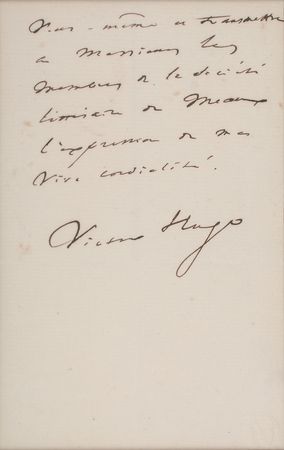 vous-même et transmettre
à Messieurs les
membres de la société
littéraire de Meaux
l'expression de ma
vive cordialité.
Victor Hugo